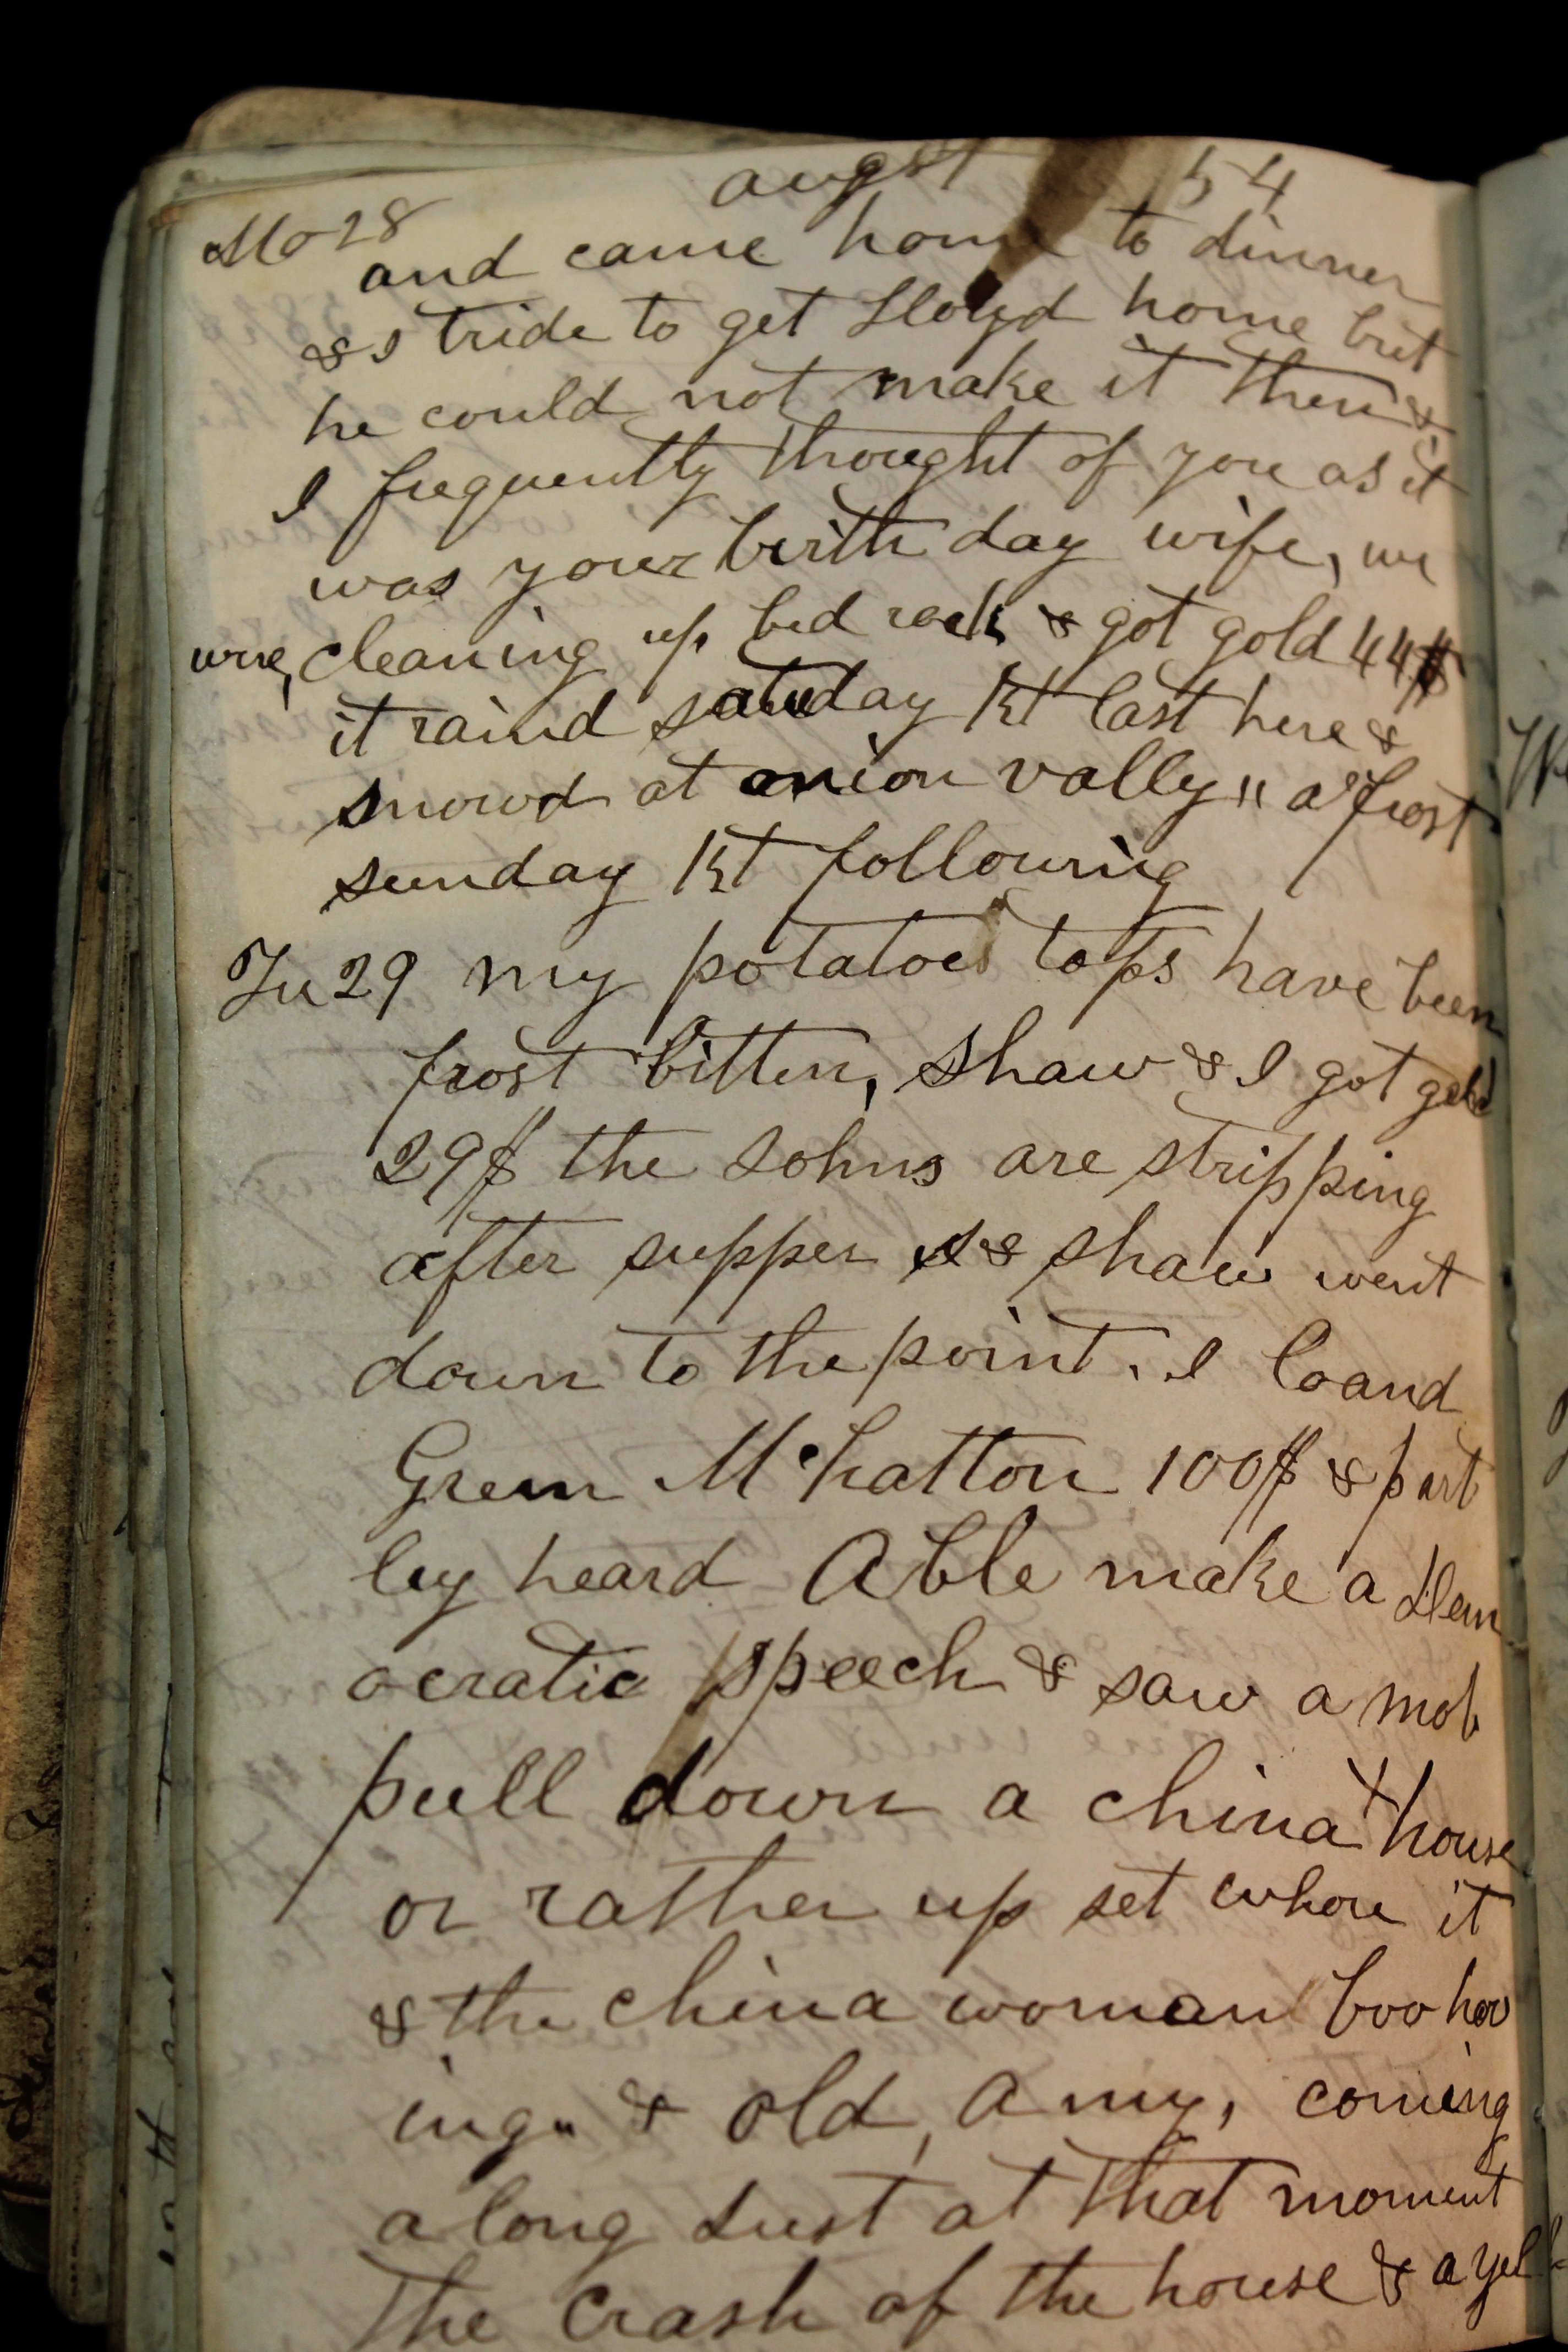 augst 54
Mo 28
and came home to dinner
& I tride to get Lloyd home but
he could not make it then &
I frequently thought of you as it
was your birth day wife, we
were, cleaning up bed rock & got gold 44$
it raind saturday nt last here &
snowd at onion vally " a frost
sunday nt following
Tu 29 my potatoes tops have been
frost bitten, Shaw & I got gold
29$ the Johns are stripping
after supper I & Shaw went
down to the point. I loand
Green McHatton 100$ & part
ley heard Able make a Dem
ocratic speech & saw a mob
pull down a china house
or rather up set whore it
& the china woman boo hoo
ing " & old, Amy, coming
along Just at that moment
the crash of the house & a yell